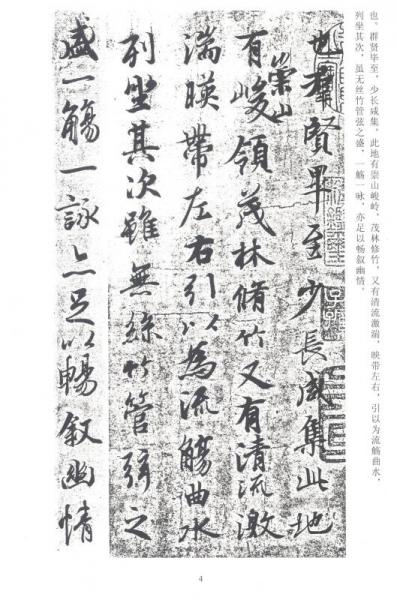 也、群贤毕至，少长咸集，此地有崇山峻岭，茂林修竹，又有清流激湍，映带左右，引以为流觞曲水，
列坐其次，虽无丝竹管弦之盛，一觞一咏，亦足以畅叙幽情。
也羣賢畢至少長咸集此地
有崇山峻領茂林脩竹又有清流激
湍暎帶左右引以為流觴曲水
列坐其次雖無絲竹管弦之
盛一觴一詠亦足以暢叙幽情
4